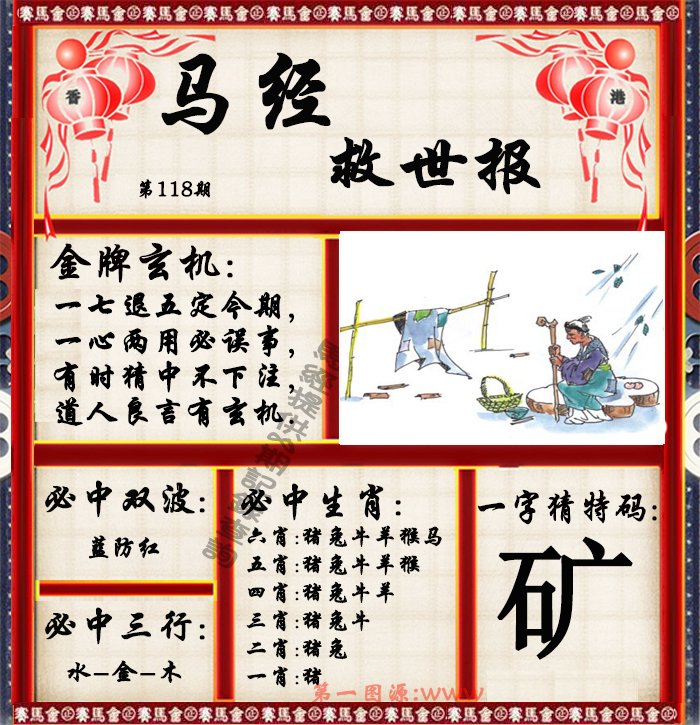 正賽馬會金正賽馬會金正賽馬會金正賽馬會金正賽馬會金正賽馬會金
香
港
马经
救世报
第118期
金牌玄机:
一七退五定今期,
一心两用必误事,
有时猜中不下注,
道人良言有玄机.
必中双波:
蓝防红
必中三行:
水-金-木
必中生肖:
六肖:猪兔牛羊猴马
五肖:猪兔牛羊猴
四肖:猪兔牛羊
三肖:猪兔牛
二肖:猪兔
一肖:猪
一字猜特码:
矿
第一图源:www